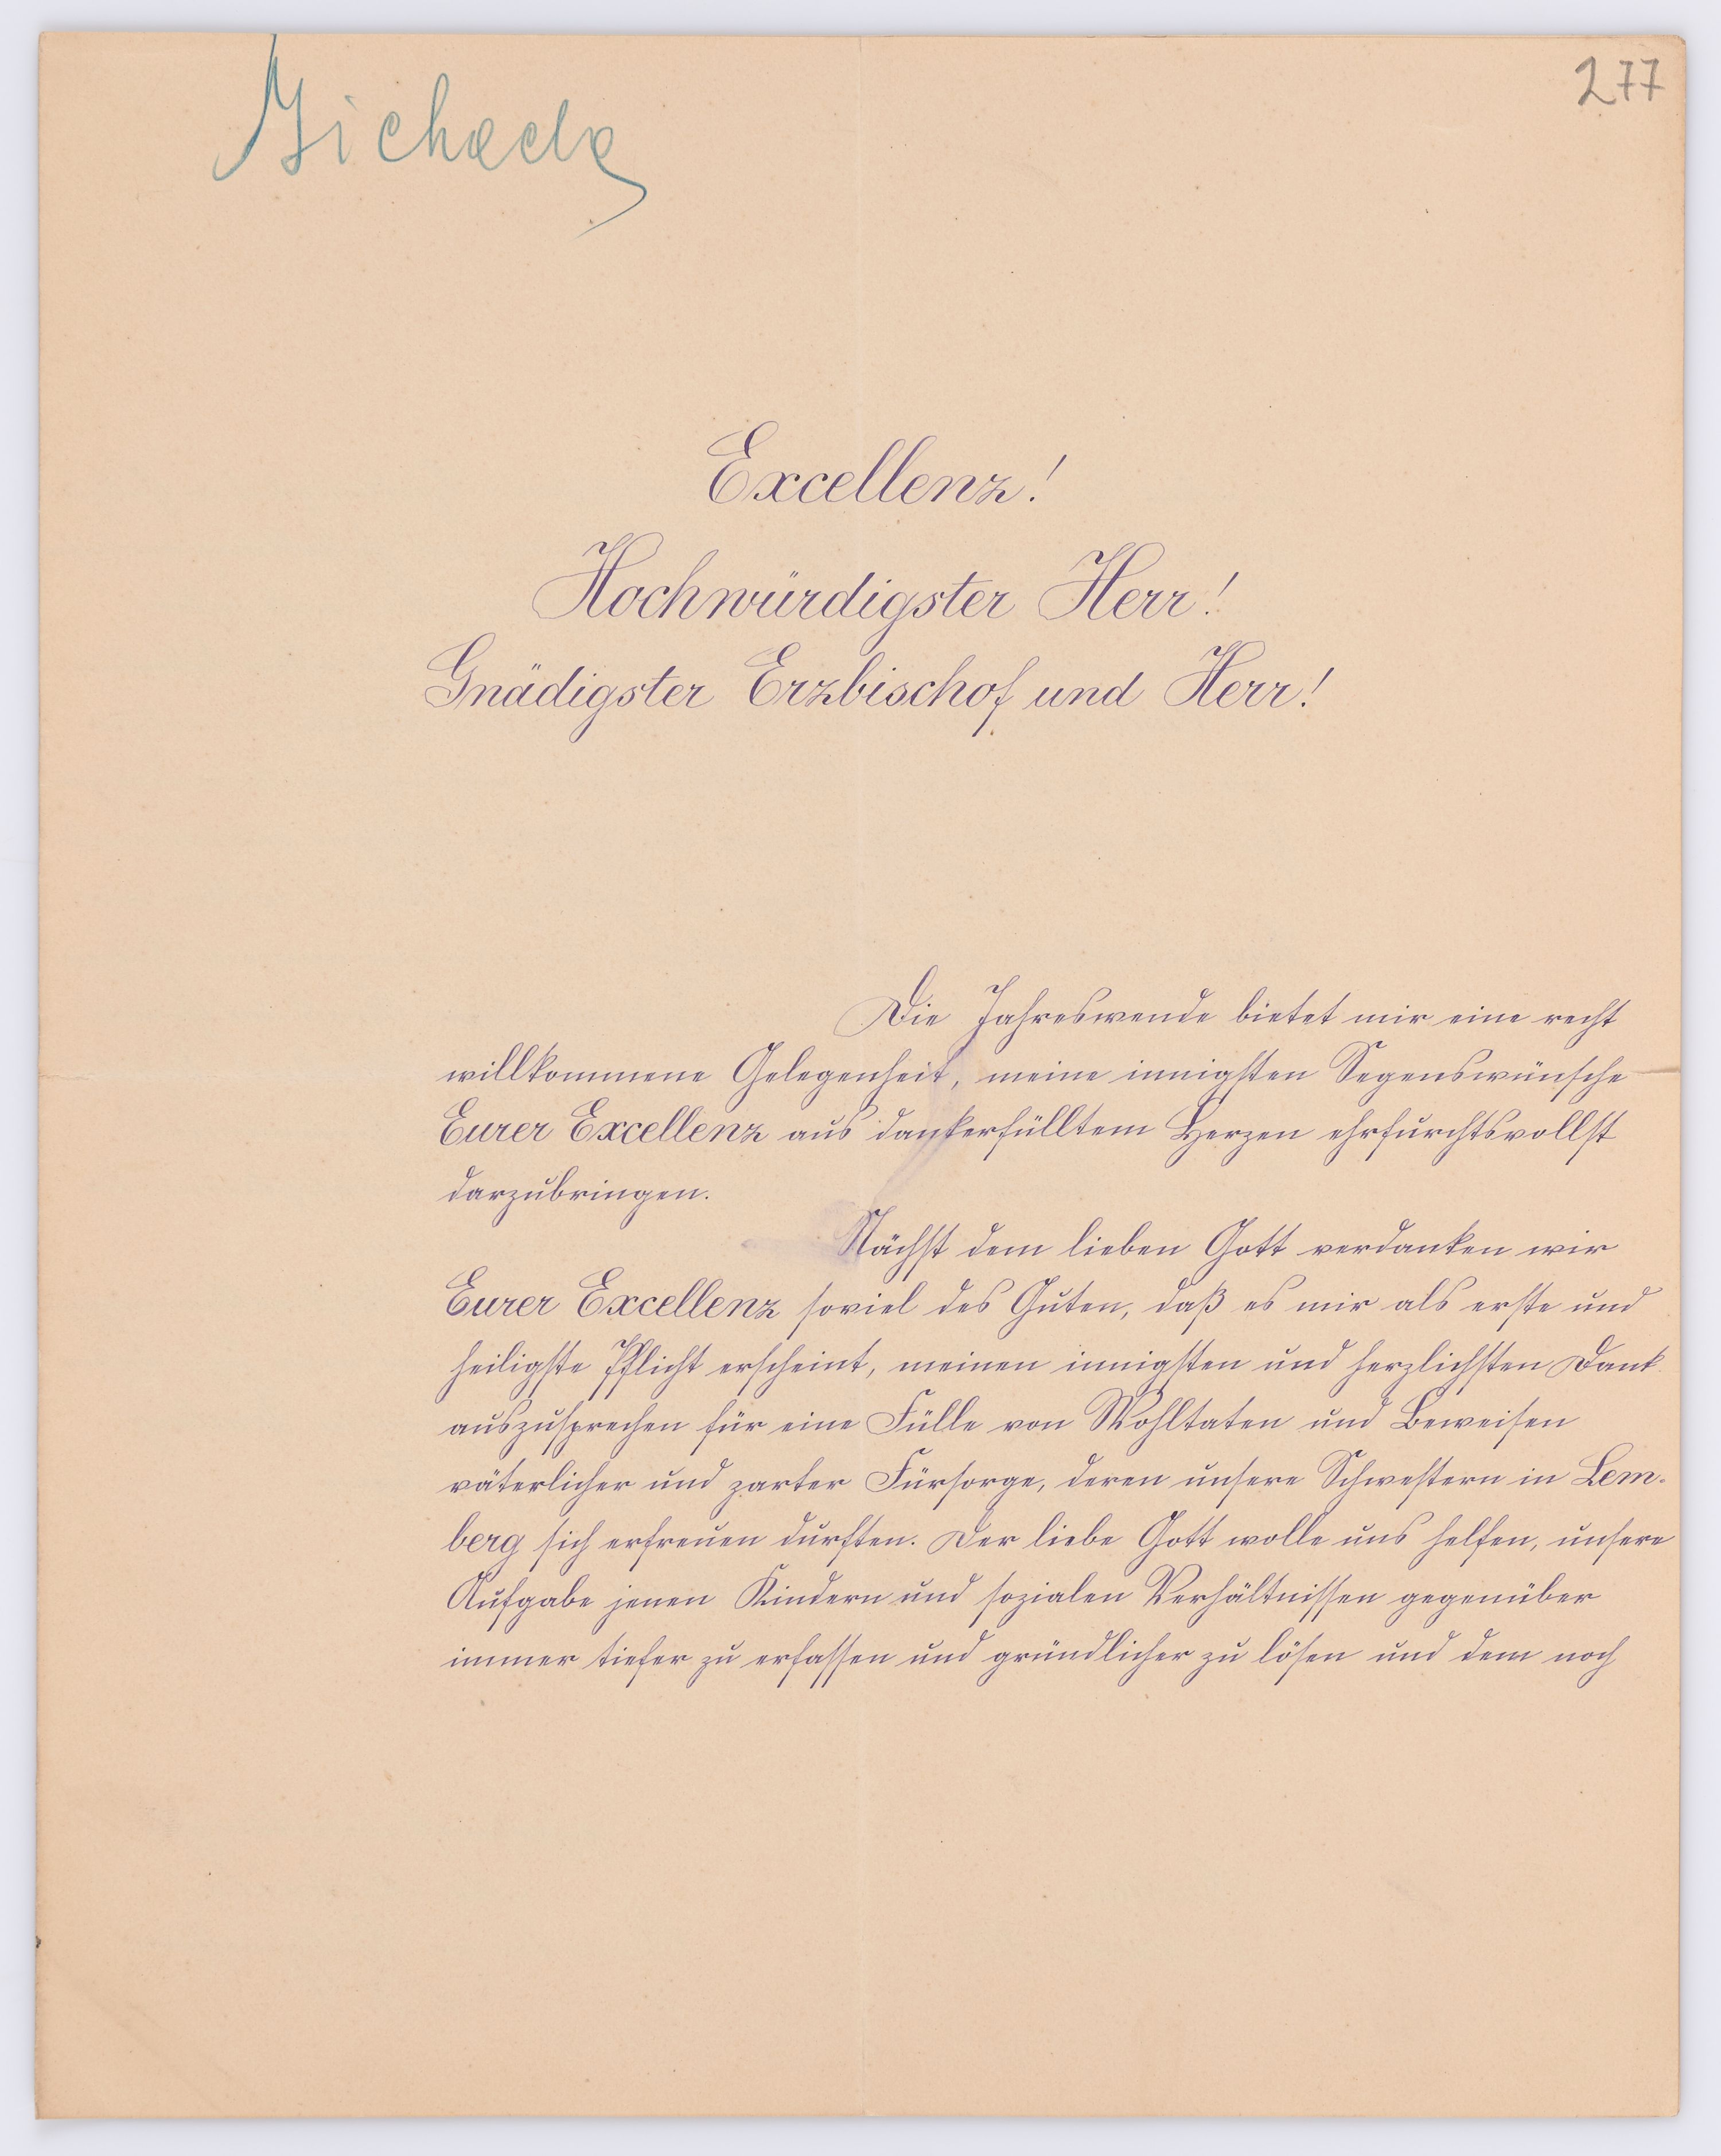 277
Excellenz!
Hochwürdigster Herr!
Gnädigster Erzbischof und Herr!
Die Jahreswende bietet mir eine recht
willkommene Gelegenheit, meine innigsten Segenswünsche
Eurer Excellenz aus dankerfülltem Herzen ehrfurchtsvollst
darzubringen.
Nächst dem lieben Gott verdanken wir
Eurer Excellenz soviel des Guten, daß es mir als erste und
heiligste Pflicht erscheint, meinen innigsten und herzlichsten Dank
auszusprechen für eine Fülle von Wohltaten und Beweisen
väterlicher und zarter Fürsorge, deren unsere Schwestern in Lem-
berg sich erfreuen durften. Der liebe Gott wolle uns helfen, unsere
Aufgabe jenen Kindern und sozialen Verhältnissen gegenüber
immer tiefer zu erfassen und gründlicher zu lösen und dem noch